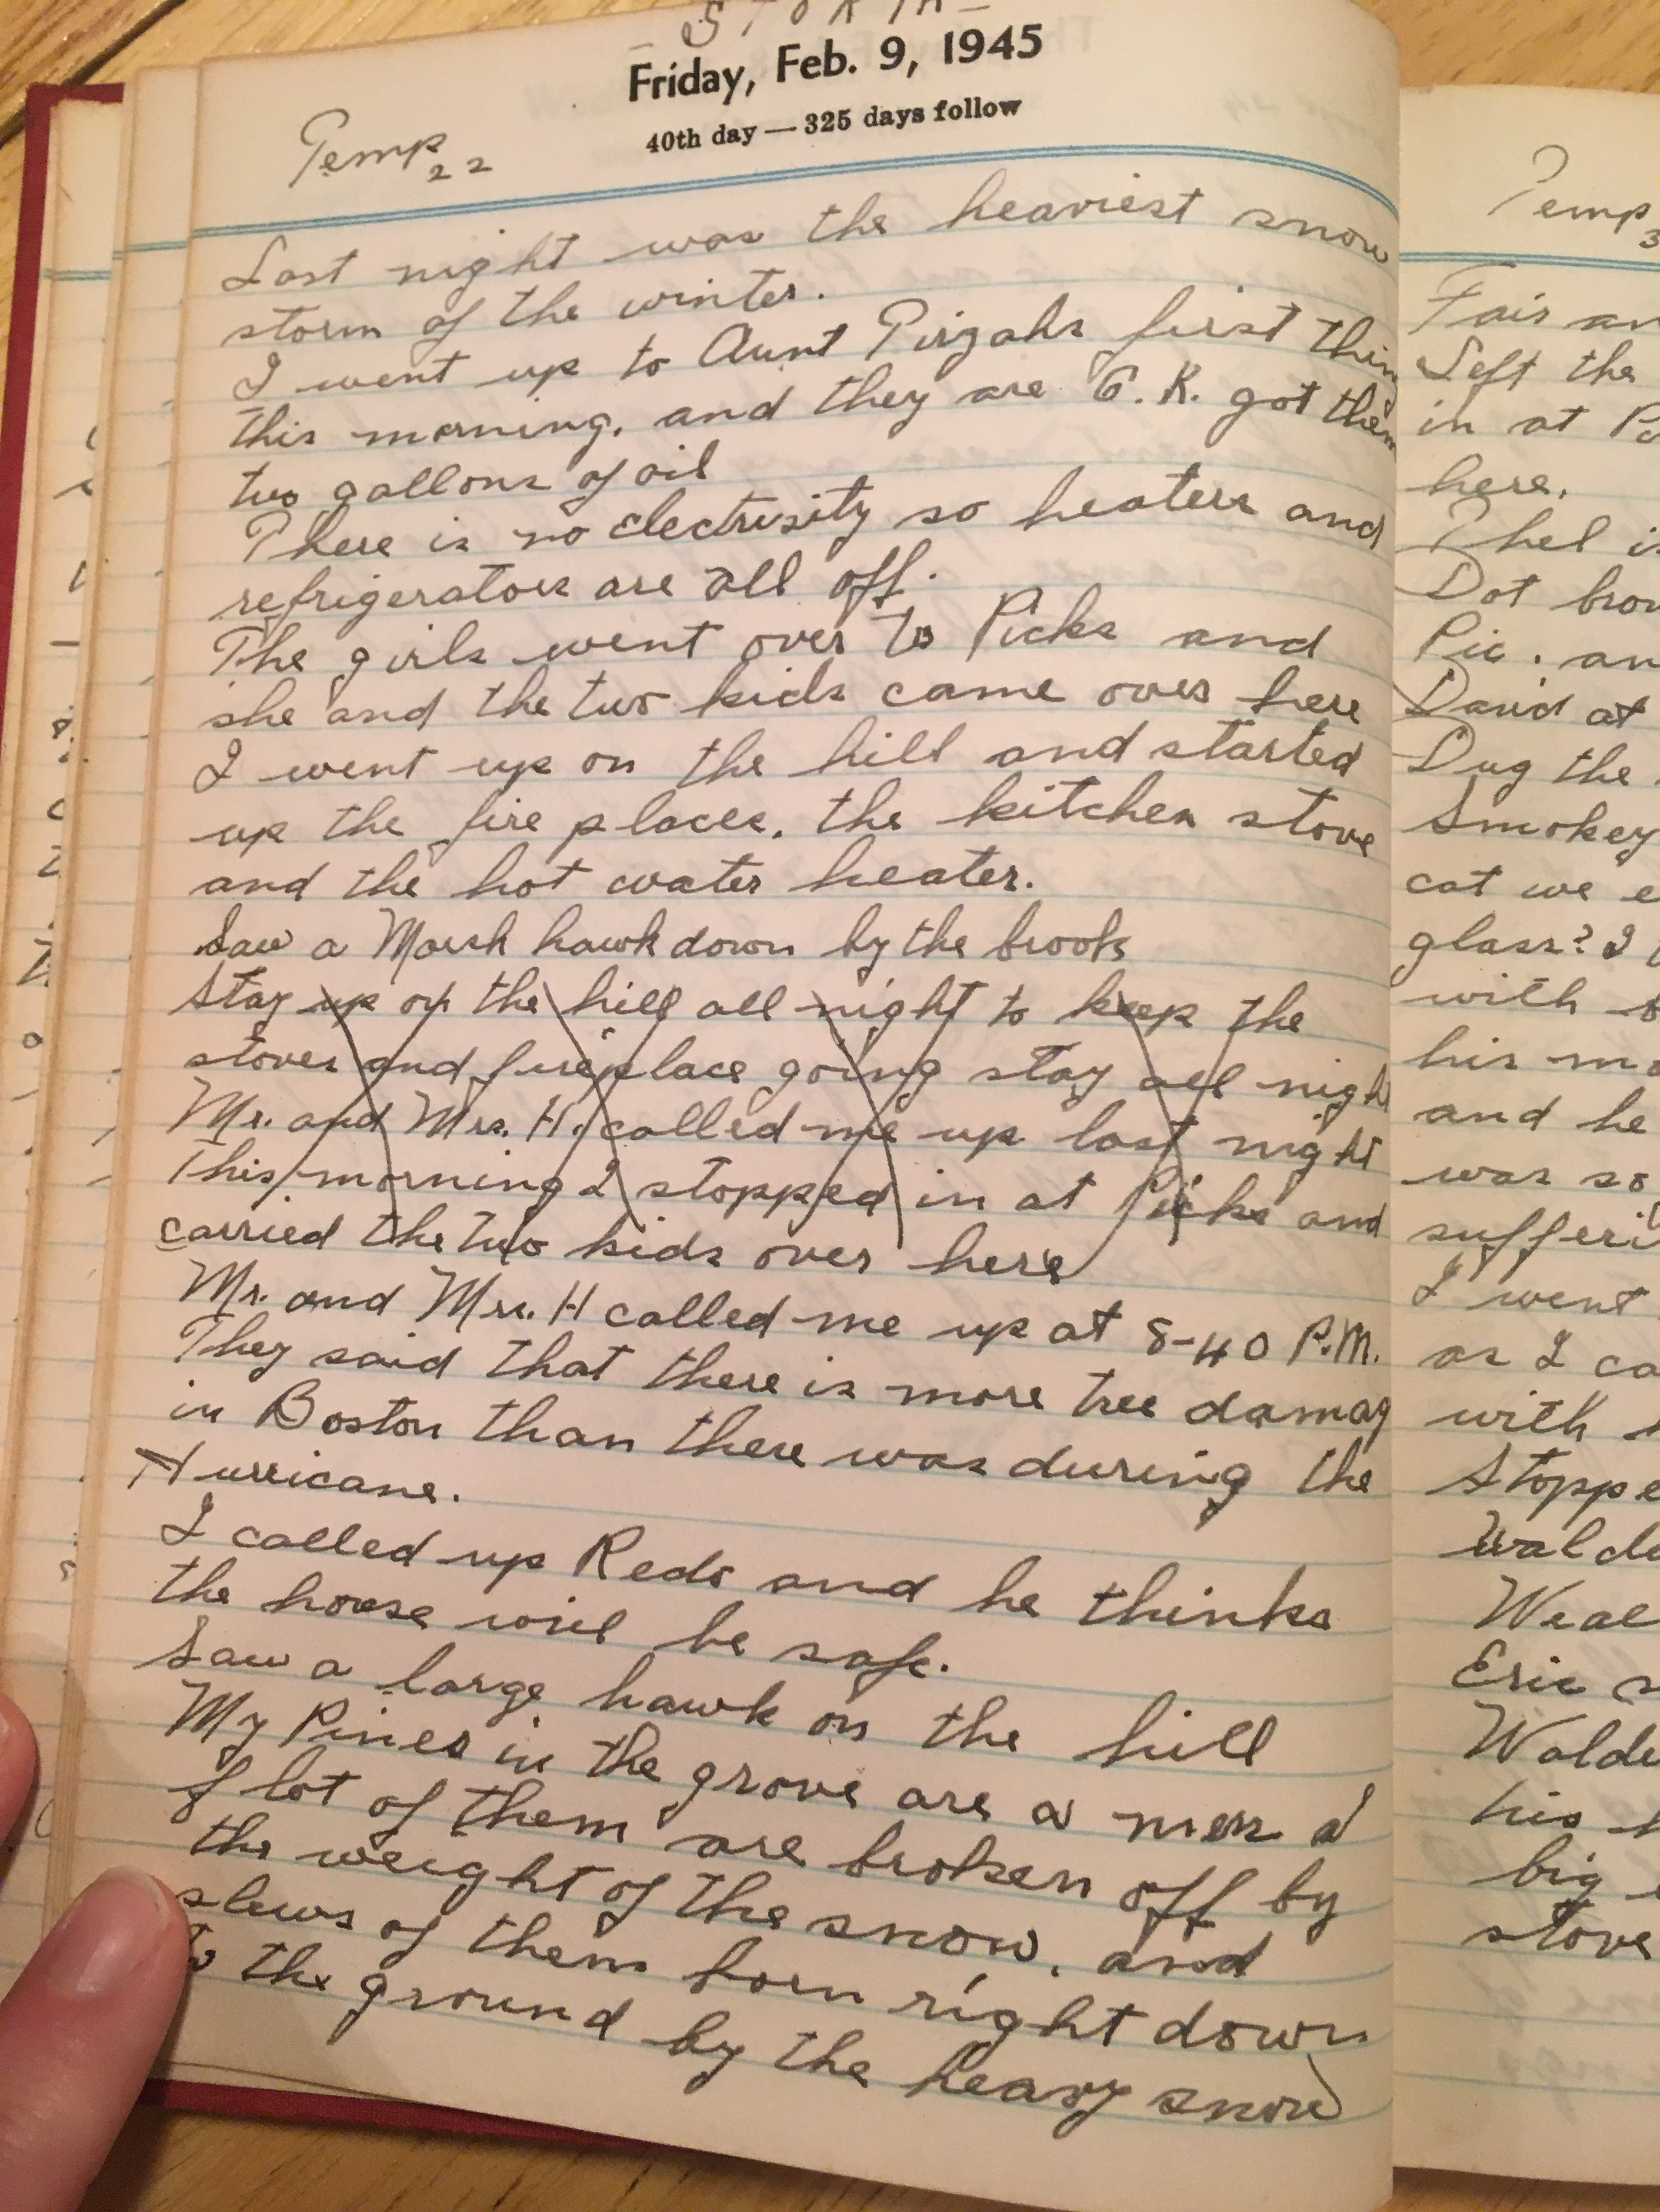 - STORM -
Friday, Feb. 9, 1945
40th day — 325 days follow
Temp 22
Last night was the heaviest snow
storm of the winter.
I went up to Aunt Pirzahs first thing
this morning, and they are O.K. got them
two gallons of oil
There is no electrisity so heaters and
refrigerators are all off.
The girls went over to Picks and
she and the two kids came over here
I went up on the hill and started
up the fire places, the kitchen stove
and the hot water heater.
Saw a Marsh hawk down by the brook
Stay up on the hill all night to keep the
stoves and fireplace going stay all night
Mr. and Mrs. H. called me up last night
This morning I stopped in at Picks and
carried the two kids over here
Mr. and Mrs. H called me up at 8-40 P.M.
They said that there is more tree damag
in Boston than there was during the
Hurricane.
I called up Reds and he thinks
the house will be safe.
Saw a large hawk on the hill
My Pines in the grove are a mess a
lot of them are broken off by
the weight of the snow, and
slews of them born right down
to the ground by the heavy snow
Temp 3
Fair an
Left the
in at P
here.
Phel is
Dot brou
Pic. an
David at
Dug the
Smokey
cat we e
glass? I
with s
his mo
and he
was so
sufferi
I went
as I ca
with
Stoppe
Walde
Weal
Eric
Walde
his h
big
stove